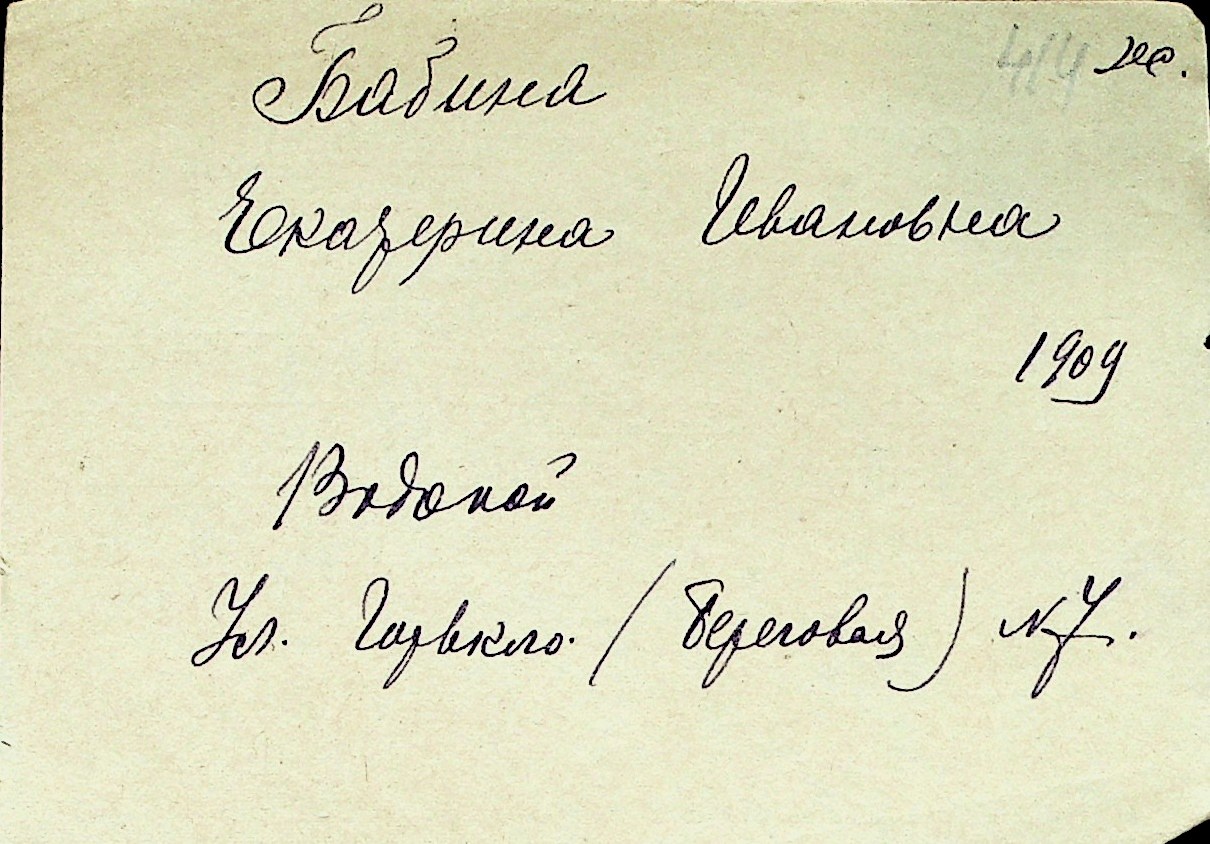 414
Бабина
Екатерина Ивановна
1909
Водопой
Ул. Горького (Береговая) № 7.